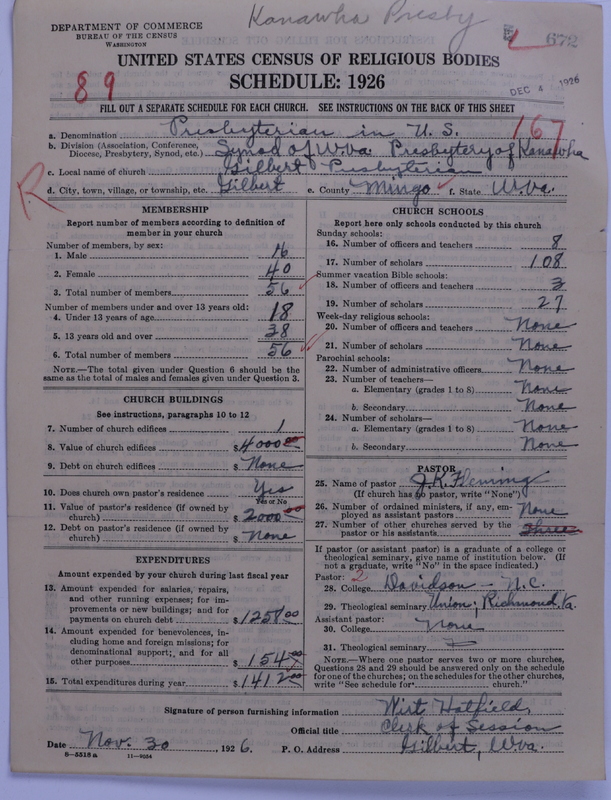 Kanawha Presby
DEPARTMENT OF COMMERCE
BUREAU OF THE CENSUS
WASHINGTON
672
UNITED STATES CENSUS OF RELIGIOUS BODIES
SCHEDULE: 1926
89
DEC 4 1926
FILL OUT A SEPARATE SCHEDULE FOR EACH CHURCH. SEE INSTRUCTIONS ON THE BACK OF THIS SHEET
167
a. Denomination Presbyterian in U. S.
b. Division (Association, Conference, Diocese, Presbytery, Synod, etc.) Synod of W.Va. Presbytery of Kanawha
c. Local name of church Gilbert Presbyterian
d. City, town, village, or township, etc. Gilbert e. County Mingo f. State W.Va.
R
MEMBERSHIP
Report number of members according to definition of
member in your church
Number of members, by sex:
1. Male 16
2. Female 40
3. Total number of members 56
Number of members under and over 13 years old:
4. Under 13 years of age 18
5. 13 years old and over 38
6. Total number of members 56
NOTE.—The total given under Question 6 should be
same as the total of males and females given under Question 3.
CHURCH BUILDINGS
See instructions, paragraphs 10 to 12
7. Number of church edifices 1
8. Value of church edifices $4000.00
9. Debt on church edifices $ None
10. Does church own pastor's residence Yes
Yes or No
11. Value of pastor's residence (if owned by
church) $2000.00
12. Debt on pastor's residence (if owned by
church) $ None
EXPENDITURES
Amount expended by your church during last fiscal year
13. Amount expended for salaries, repairs,
and other running expenses; for im-
provements or new buildings; and for
payments on church debt $1258.00
14. Amount expended for benevolences, in-
cluding home and foreign missions; for
denominational support; and for all
other purposes $154
15. Total expenditures during year $1412.00
CHURCH SCHOOLS
Report here only schools conducted by this church
Sunday schools:
16. Number of officers and teachers 8
17. Number of scholars 108
Summer vacation Bible schools:
18. Number of officers and teachers 3
19. Number of scholars 27
Week-day religious schools:
20. Number of officers and teachers None
21. Number of scholars None
Parochial schools:
22. Number of administrative officers None
23. Number of teachers—
a. Elementary (grades 1 to 8) None
b. Secondary None
24. Number of scholars—
a. Elementary (grades 1 to 8) None
b. Secondary None
PASTOR
25. Name of pastor J.K. Fleming
(If church has no pastor, write "None")
26. Number of ordained ministers, if any, em-
ployed as assistant pastors None
27. Number of other churches served by the
pastor or his assistants Three
If pastor (or assistant pastor) is a graduate of a college or
theological seminary, give name of institution below. (If
not a graduate, write "No" in the space indicated.)
Pastor: 2
28. College Davidson - N.C.
29. Theological seminary Union, Richmond, Va.
Assistant pastor:
30. College None
31. Theological seminary
NOTE.—Where one pastor serves two or more churches,
Questions 28 and 29 should be answered only on the schedule
for one of the churches; on the schedules for the other churches,
write "See schedule for church."
Signature of person furnishing information Wirt Hatfield,
Official title Clerk of Session
Date Nov. 30, 1926. P. O. Address Gilbert, W.Va.
8—5518a 11—9054